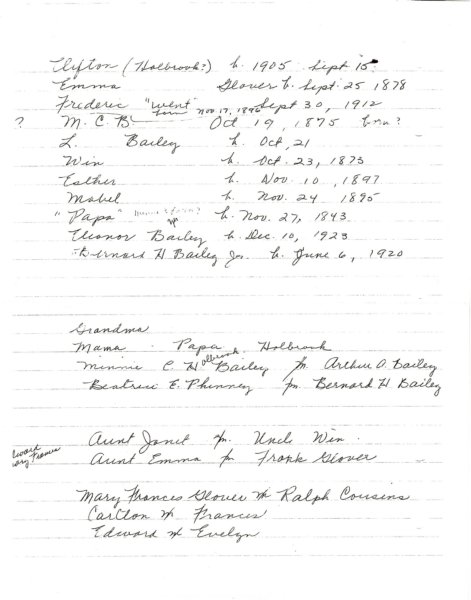 Clifton (Holbrook?) b. 1905 Sept 15
Emma Glover b. Sept. 25 1878
Frederic "Went" born Nov 17, 1896 Sept 30, 1912
? M. C. B. Oct 19, 1875 b. ?
L. Bailey b. Oct, 21
Win b. Oct. 23, 1873
Esther b. Nov. 10, 1897
Mabel b. Nov. 24 1895
"Papa" b. Nov. 27, 1843.
Eleanor Bailey b. Dec. 10, 1923
Bernard H Bailey Jr. b. June 6, 1920
Grandma
Mama Papa Holbrook
Minnie C. Holbrook Bailey m. Arthur A. Bailey
Beatrice E. Phinney m Bernard H Bailey
Aunt Janet m. Uncle Win.
Edward Mary Frances
Aunt Emma m Frank Glover
Mary Frances Glover m Ralph Cousins
Carlton m Frances
Edward m Evelyn